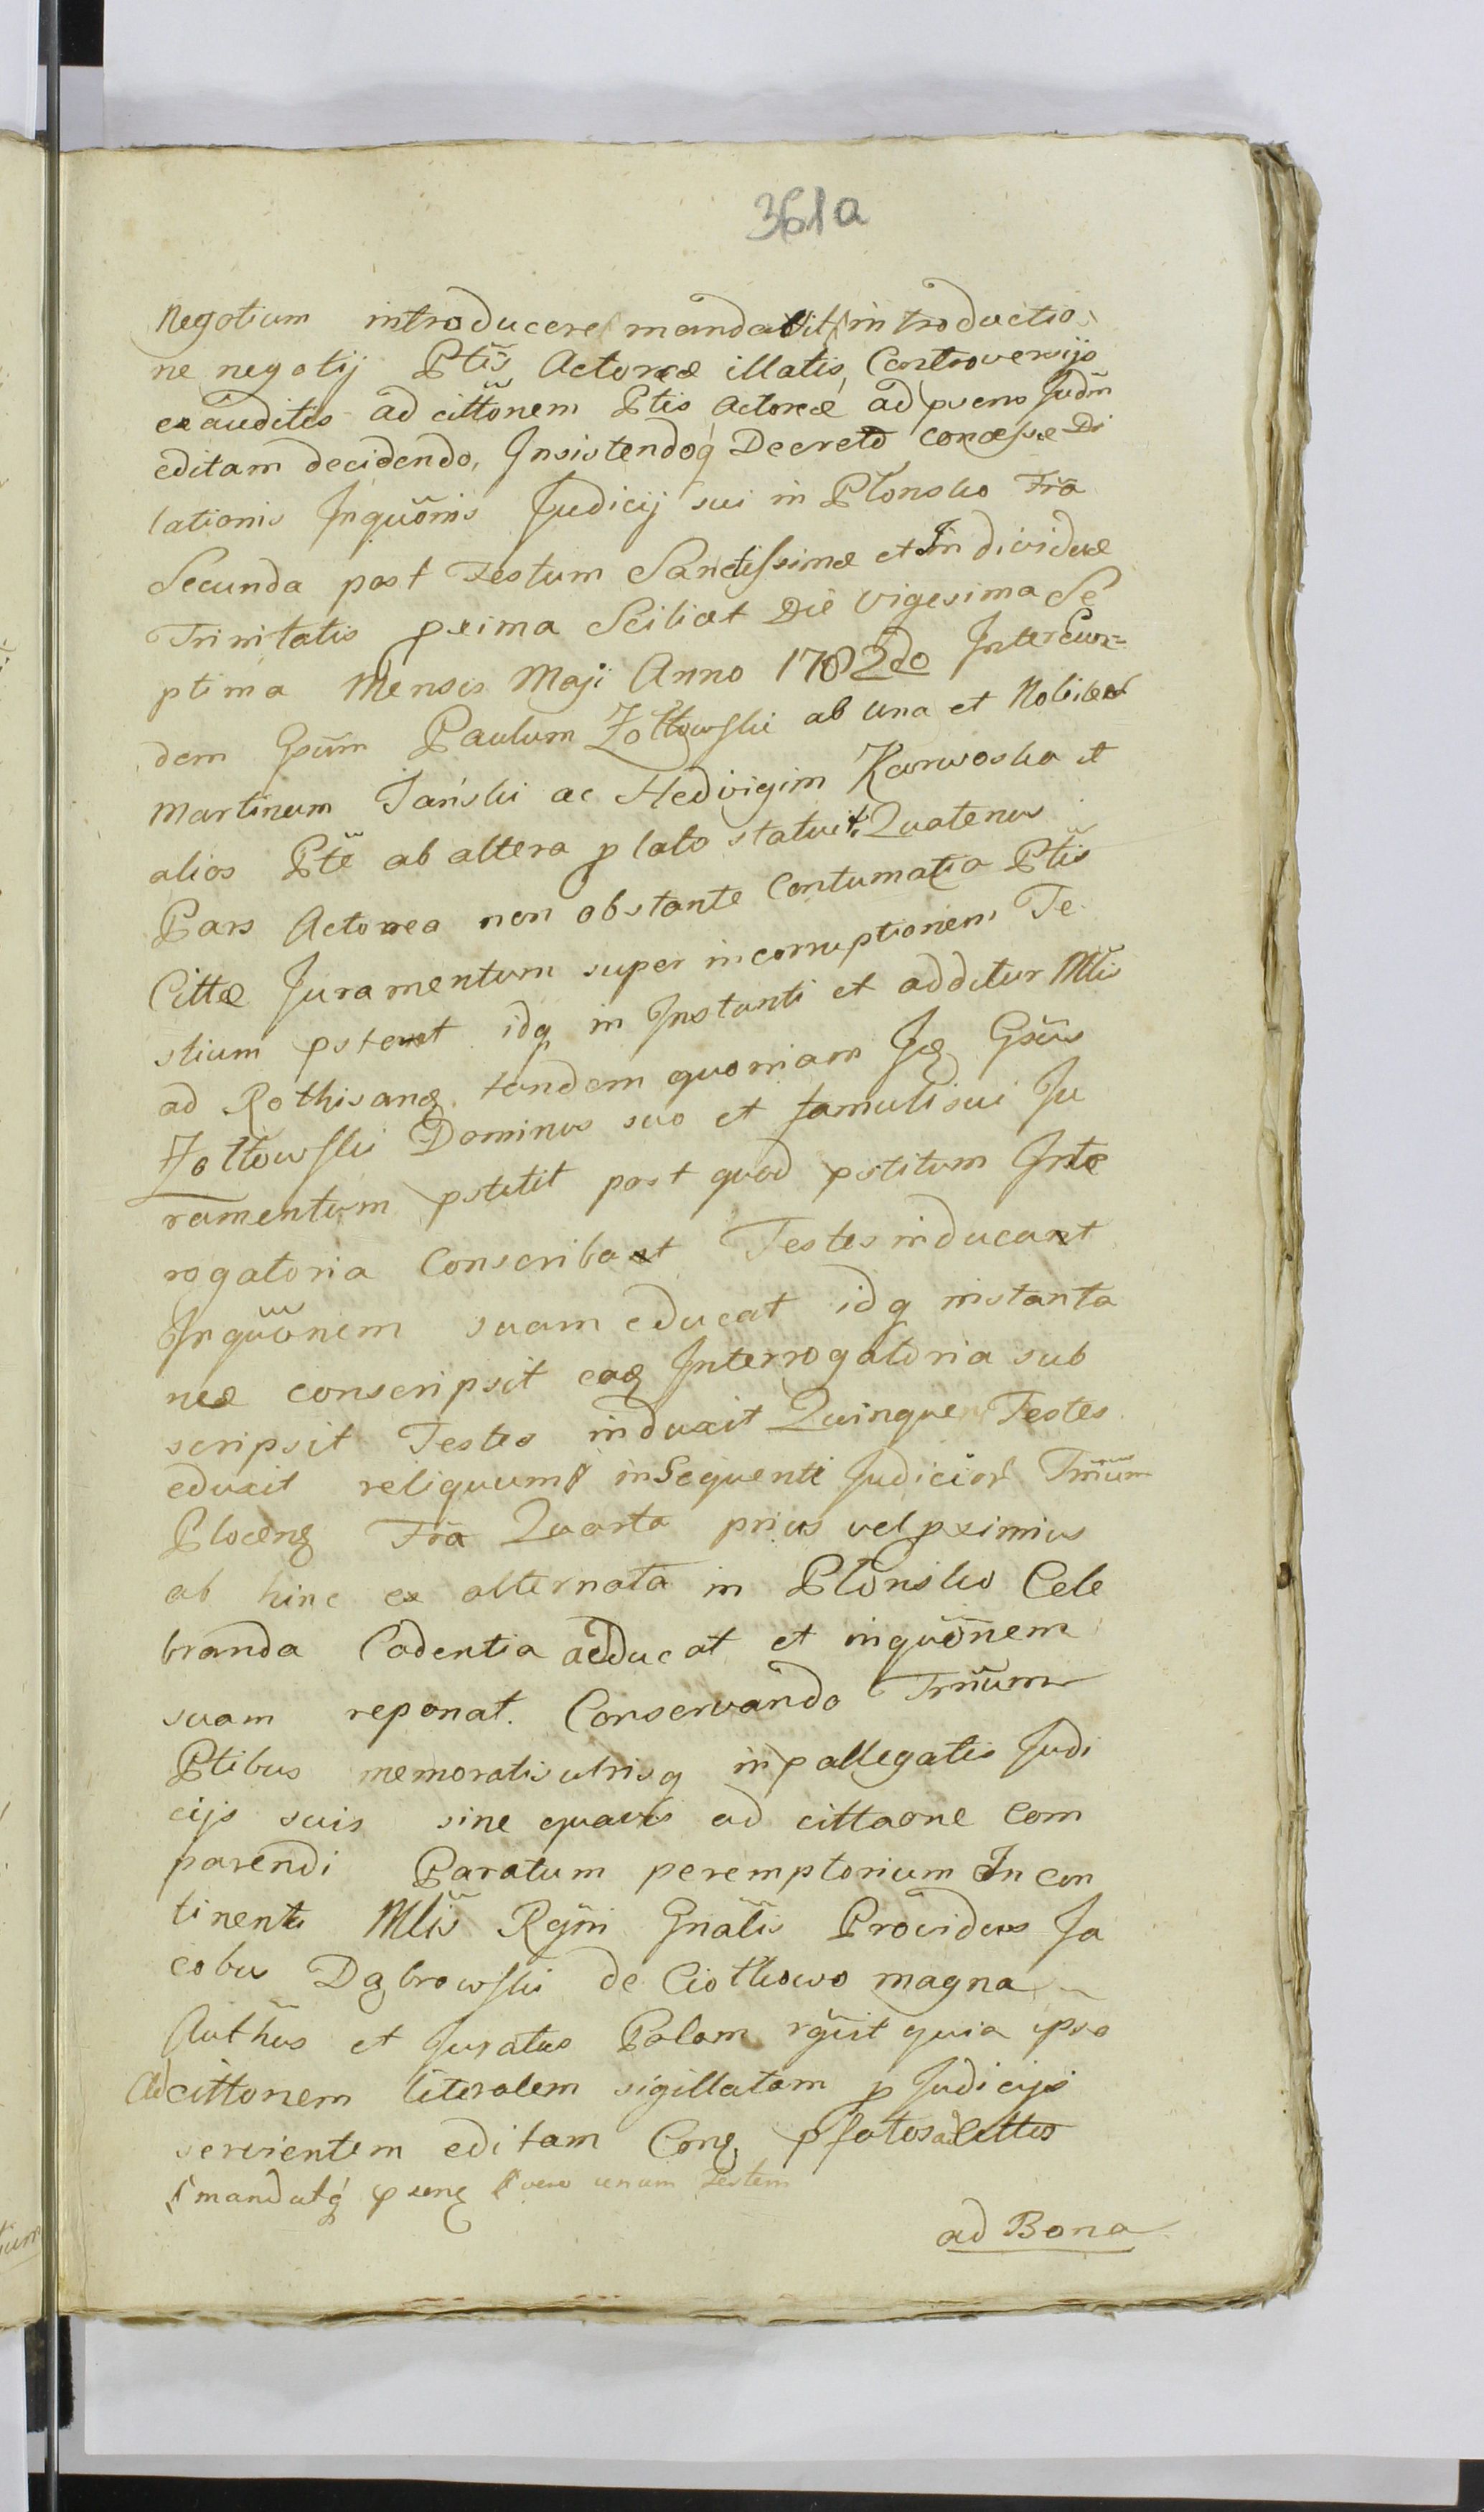 361a
negotium introducere mandavit introductio
ne negotij Ptis Actoreæ illatis Controversijs
exauditis ad cittonem Ptis Actoreæ ad pṡens Judm
editam decidendo, Insistendoq Decreto concessæ Di
lationis Inquõnis Judicij sui in Płonsko Fia
Secunda post Festum Sanctissimæ et Individuæ
Trinitatis pxima Scilicet Die Vigesima Se
ptima Mensis Maji Anno 1782do Inter Eun=
dem Gsum Paulum Żołtowski ab una et Nobiles
Martinum Jański ac Hedvigim Karwoska et
alios Pte ab altera p lato statuit. Quatenus
Pars Actorea non obstante Contumatia Ptis
Cittæ Juramentum super incorruptionem Te
stium pstent idq in Instanti et additur Mlis
ad Rothisanq tandem quoniam Iq Gsus
Żołtowski Dominus suo et famuli sui Ju
ramentum pstitit post quod pstitum Inte
rogatoria Conscribat Testes inducant
Inquõnem suam educat idq instanta
nee conscripsit eaq Interrogatoria sub
scripsit Testes induxit Quinque Testes
eduxit reliquum in Sequenti Judicior Tmum
Plocenq Fia Quarta prius vel pximius
ab hinc ex alternata in Płonsko Cele
branda Cadentia adducat et inquõnem
suam reponat. Conservando Tmum
Ptibus memoratis utrisq in pallegatis Judi
cijs suis sine quavis ad cittaone Com
parendi Paratum peremptorium In con
tinenti Mlis Rgni Gnalis Providus Ja
cobus Dąbrowski de Ciołkowo magna
Authus et Juratus Palam rgnit quia ipse
Adcittonem literalem sigillatam p Judicijs
servientem editam Conq pfatos ad Cittos
mandatq psenq vero unum Testem
ad Bona